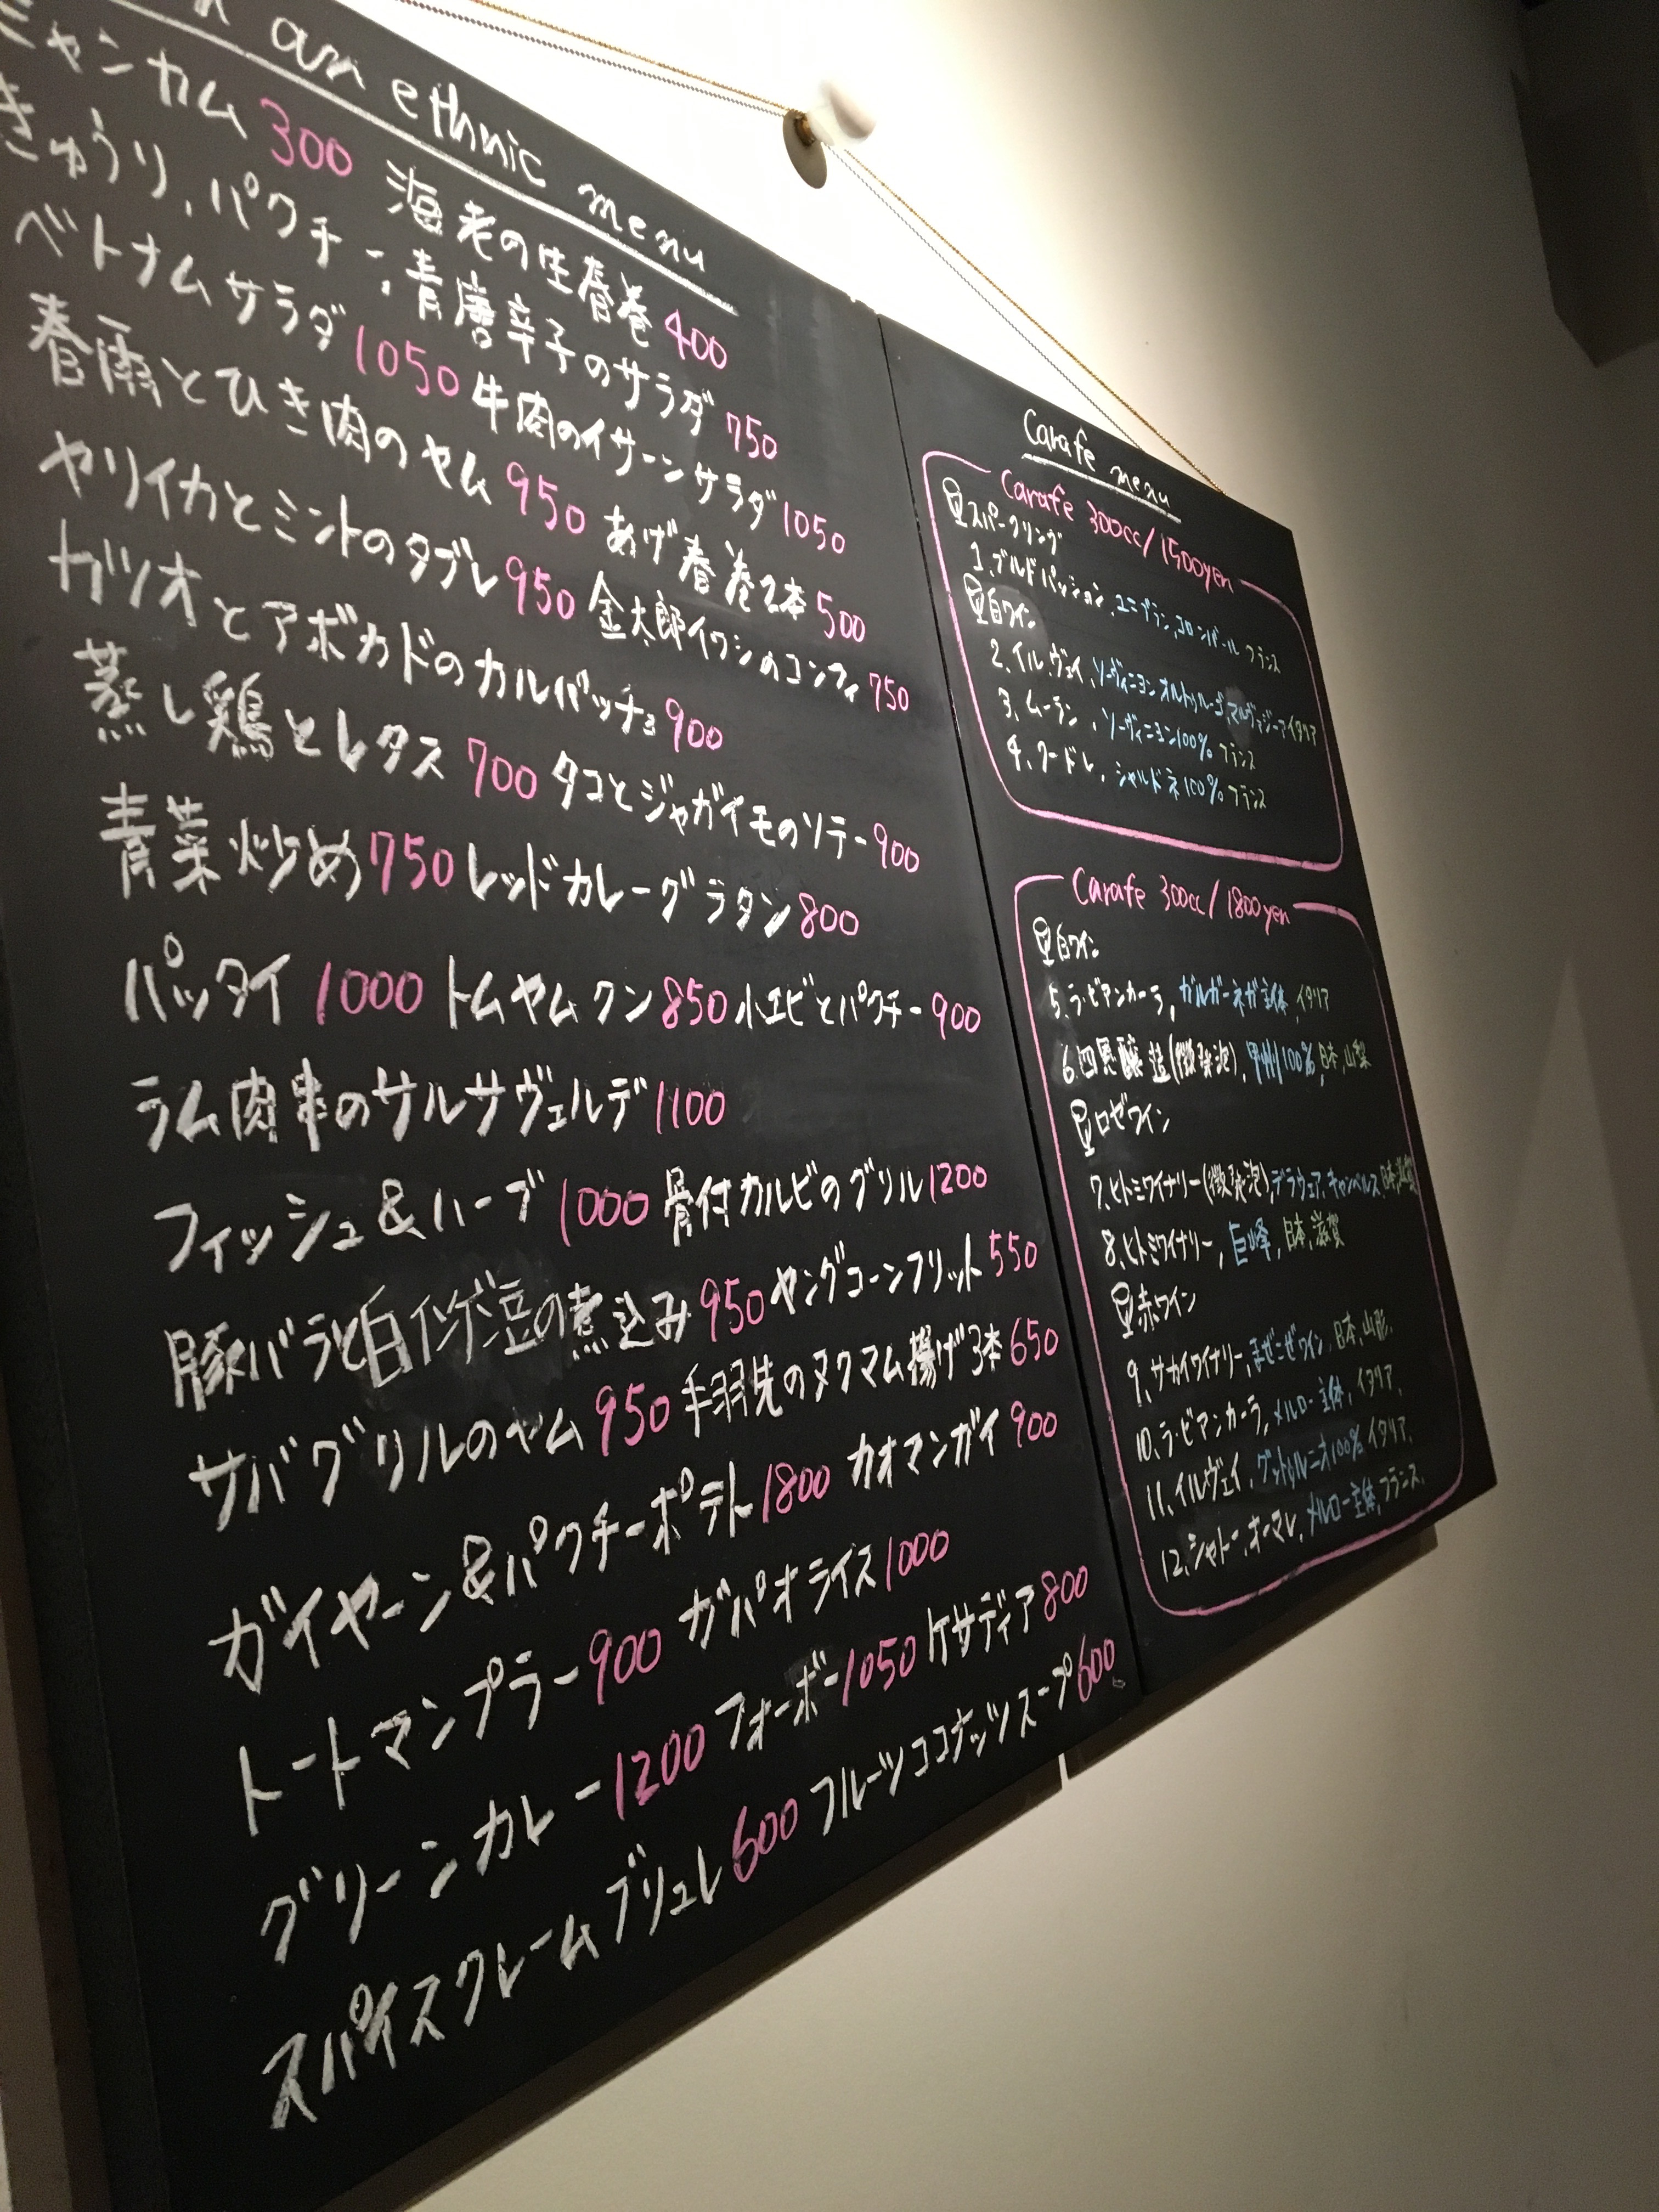 an ethnic menu
ミャンカム 300 海老の生春巻 400
きゅうり、パクチー、青唐辛子のサラダ 750
ベトナムサラダ 1050 牛肉のイサーンサラダ 1050
春雨とひき肉のヤム 950 あげ春巻2本 500
ヤリイカとミントのタブレ 950 金太郎イワシのコンフィ 750
ガツオとアボカドのカルパッチョ 900
蒸し鶏とレタス 700 タコとジャガイモのソテー 900
青菜炒め 750 レッドカレーグラタン 800
パッタイ 1000 トムヤムクン 850 小エビとパクチー 900
ラム肉串のサルサヴェルデ 1100
フィッシュ&ハーブ 1000 骨付カルビのグリル 1200
豚バラと白インゲン豆の煮込み 950 ヤングコーンフリット 550
サバグリルのヤム 950 手羽先のヌクマム揚げ3本 650
ガイヤーン&パクチーポテト 1800 カオマンガイ 900
トートマンプラー 900 ガパオライス 1000
グリーンカレー 1200 フォーボー 1050 ケサディア 800
スパイスクレームブリュレ 600 フルーツココナッツスープ 600
Carafe menu
Carafe 300cc/1500yen
スパークリング
1、ブルドパッション、ユニブラン、コロンバール フランス
白ワイン
2、イルヴェイ、ソーヴィニヨン オルトゥルーゴ、マルヴァジーア イタリア
3、ムーラン、ソーヴィニヨン100% フランス
4、クードレ、シャルドネ100% フランス
Carafe 300cc/1800yen
白ワイン
5、ラ・ビアンカーラ、ガルガーネガ主体、イタリア
6、四恩醸造(微発泡)、甲州100%、日本、山梨
ロゼワイン
7、ヒトミワイナリー(微発泡)、デラウェア、キャンベルス、日本、滋賀
8、ヒトミワイナリー、巨峰、日本、滋賀
赤ワイン
9、サカイワイナリー、まぜこぜワイン、日本、山形、
10、ラ・ビアンカーラ、メルロー主体、イタリア、
11、イルヴェイ、グットゥルニオ100% イタリア、
12、シャトー、オーマレ、メルロー主体、フランス、